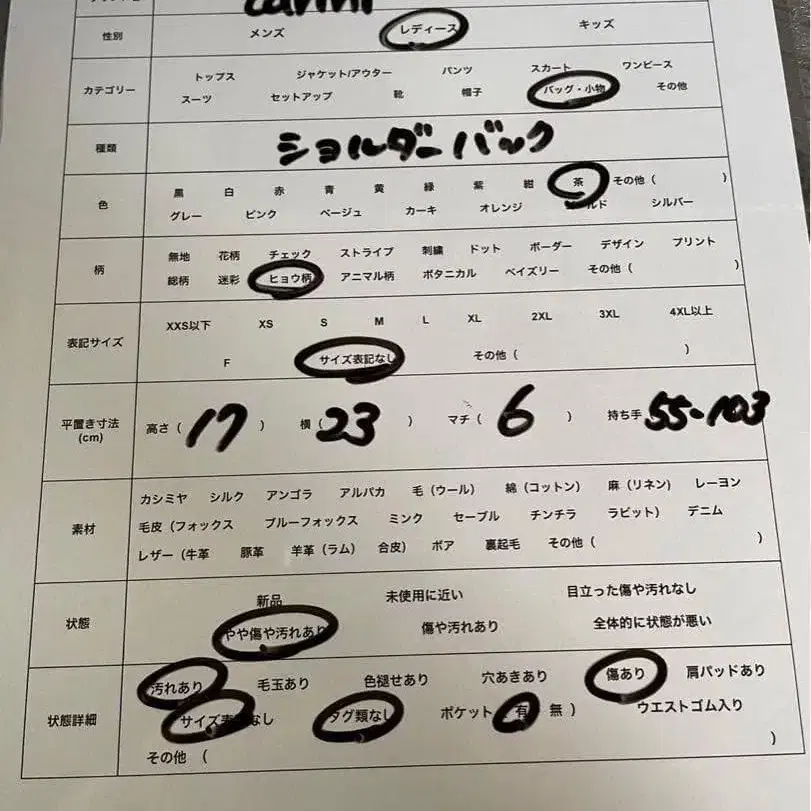 性別 メンズ レディース キッズ
カテゴリー トップス ジャケット/アウター パンツ スカート ワンピース
スーツ セットアップ 靴 帽子 バッグ・小物 その他
種類 ショルダーバック
色 黒 白 赤 青 黄 緑 紫 紺 茶 その他( )
グレー ピンク ベージュ カーキ オレンジ ルド シルバー
柄 無地 花柄 チェック ストライプ 刺繍 ドット ボーダー デザイン プリント
総柄 迷彩 ヒョウ柄 アニマル柄 ボタニカル ペイズリー その他( )
表記サイズ XXS以下 XS S M L XL 2XL 3XL 4XL以上
F サイズ表記なし その他( )
平置き寸法
(cm)
高さ( 17 ) 横( 23 ) マチ( 6 ) 持ち手 55-103
素材 カシミヤ シルク アンゴラ アルパカ 毛(ウール) 綿(コットン) 麻(リネン) レーヨン
毛皮(フォックス ブルーフォックス ミンク セーブル チンチラ ラビット) デニム
レザー(牛革 豚革 羊革(ラム) 合皮) ボア 裏起毛 その他( )
状態 新品 未使用に近い 目立った傷や汚れなし
やや傷や汚れあり 傷や汚れあり 全体的に状態が悪い
状態詳細 汚れあり 毛玉あり 色褪せあり 穴あきあり 傷あり 肩パッドあり
サイズ表記なし タグ類なし ポケット 有 無 ) ウエストゴム入り
その他 ( )